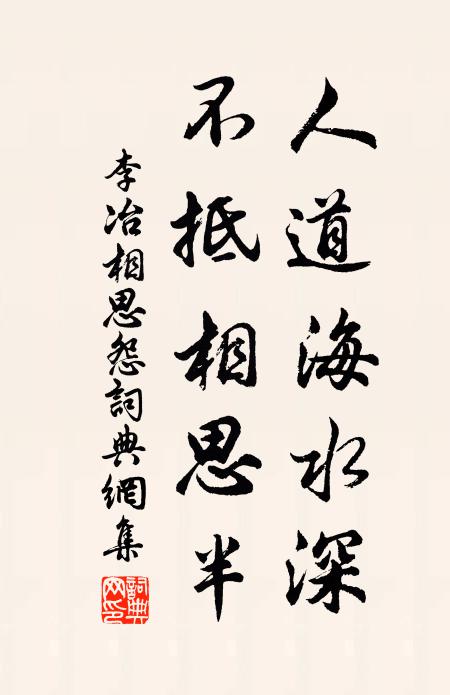 人道海水深
不抵相思半
李冶相思怨詞典網集